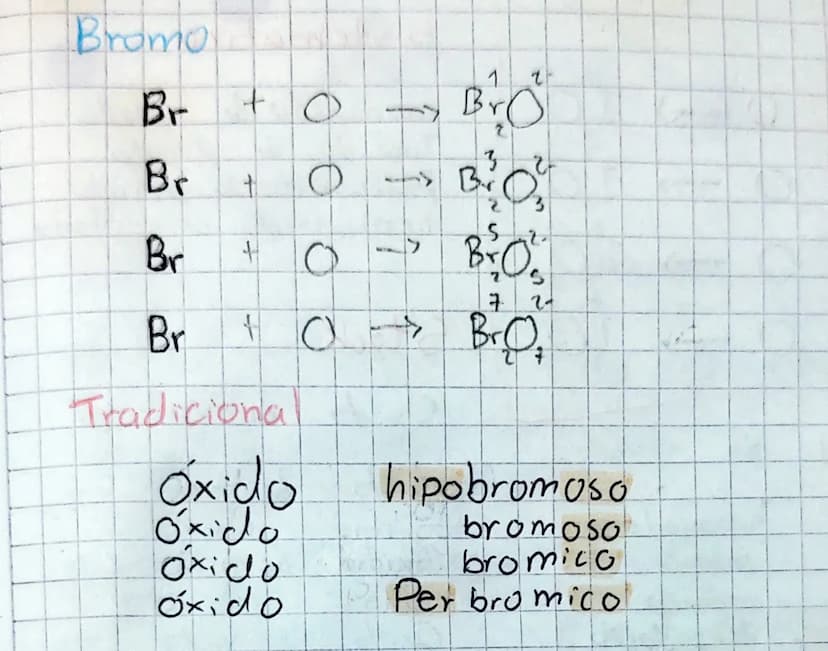 Bromo
Br + O → Br₂¹O²⁻
Br + O → Br₂³O₃²⁻
Br + O → Br₂⁵O₅²⁻
Br + O → Br₂⁷O₇²⁻
Tradicional
Óxido hipobromoso
Óxido bromoso
Óxido bromico
óxido Per bromico